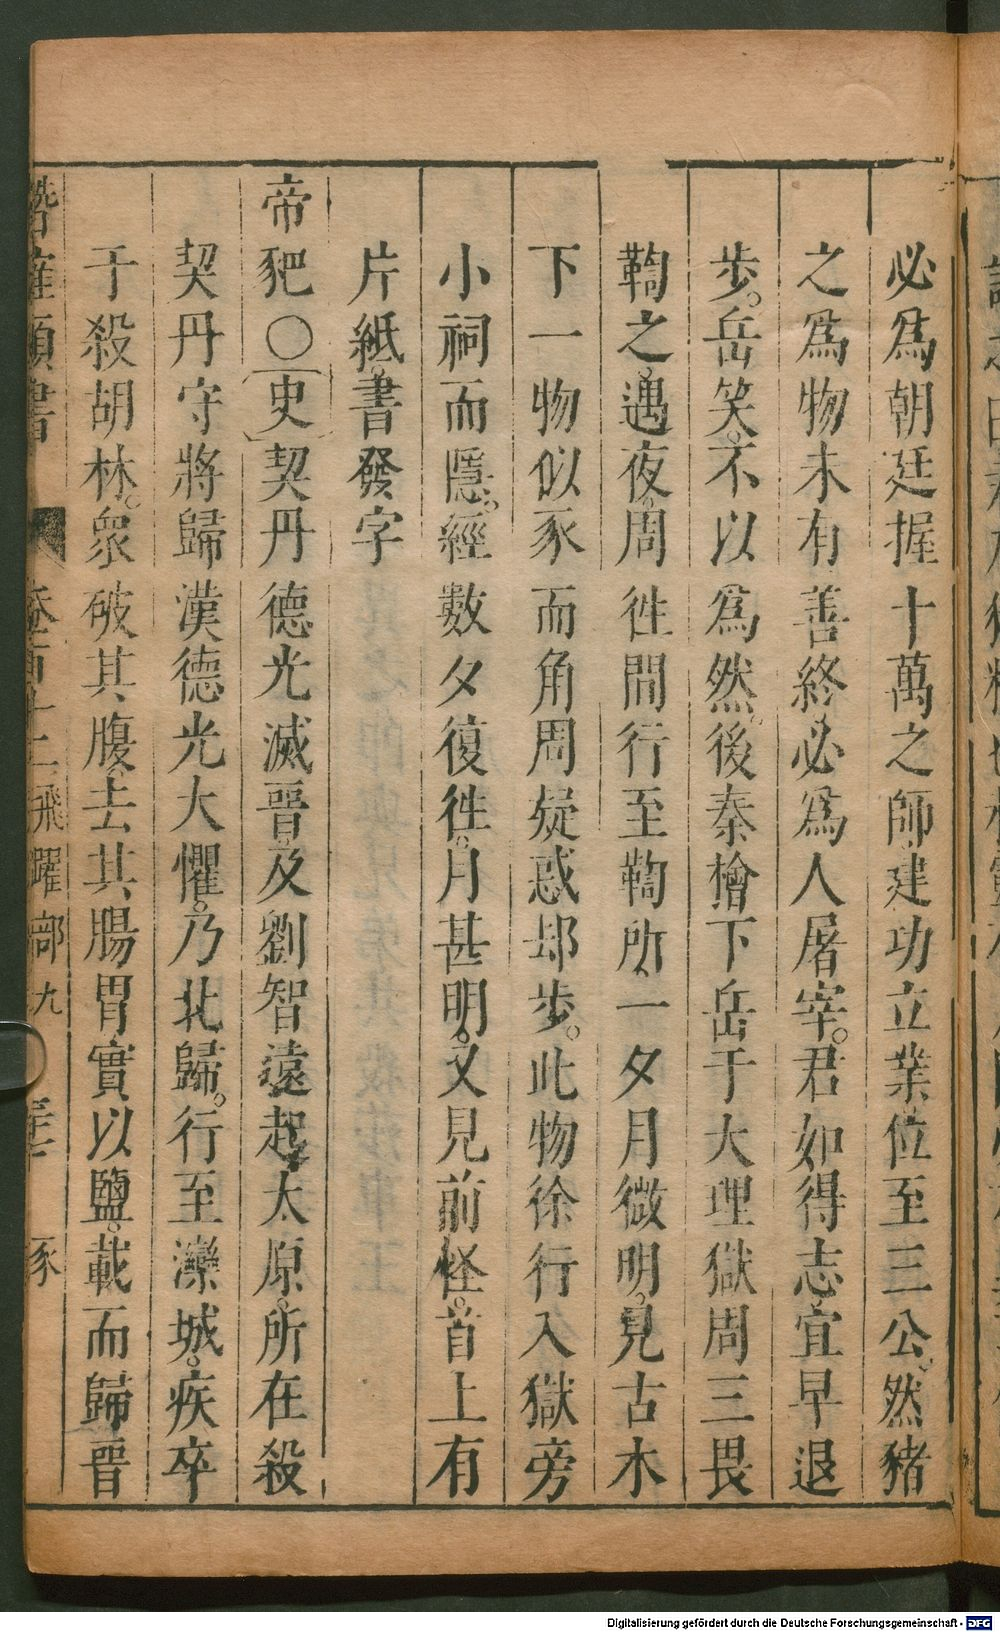 必爲朝廷握十萬之師建功立業位至三公然豬
之爲物未有善終必爲人屠宰。君如得志宜早退
步。岳笑。不以爲然。後秦檜下岳于大理獄周三畏
鞫之。遇夜。周徃間行至鞫所一夕月微明。見古木
下一物似豕而角周疑惑却步。此物徐行入獄旁
小祠而隱。經數夕復徃。月甚明。又見前怪。首上有
片紙。書發字
帝羓〇史契丹德光滅晋。及劉智遠起太原。所在殺
契丹守將歸漢德光大懼。乃北歸。行至灤城。疾卒
于殺胡林。衆破其腹。去其腸胃實以鹽。載而歸晋
潛確類書
飛躍部九
豕
Digitalisierung gefördert durch die Deutsche Forschungsgemeinschaft - DFG